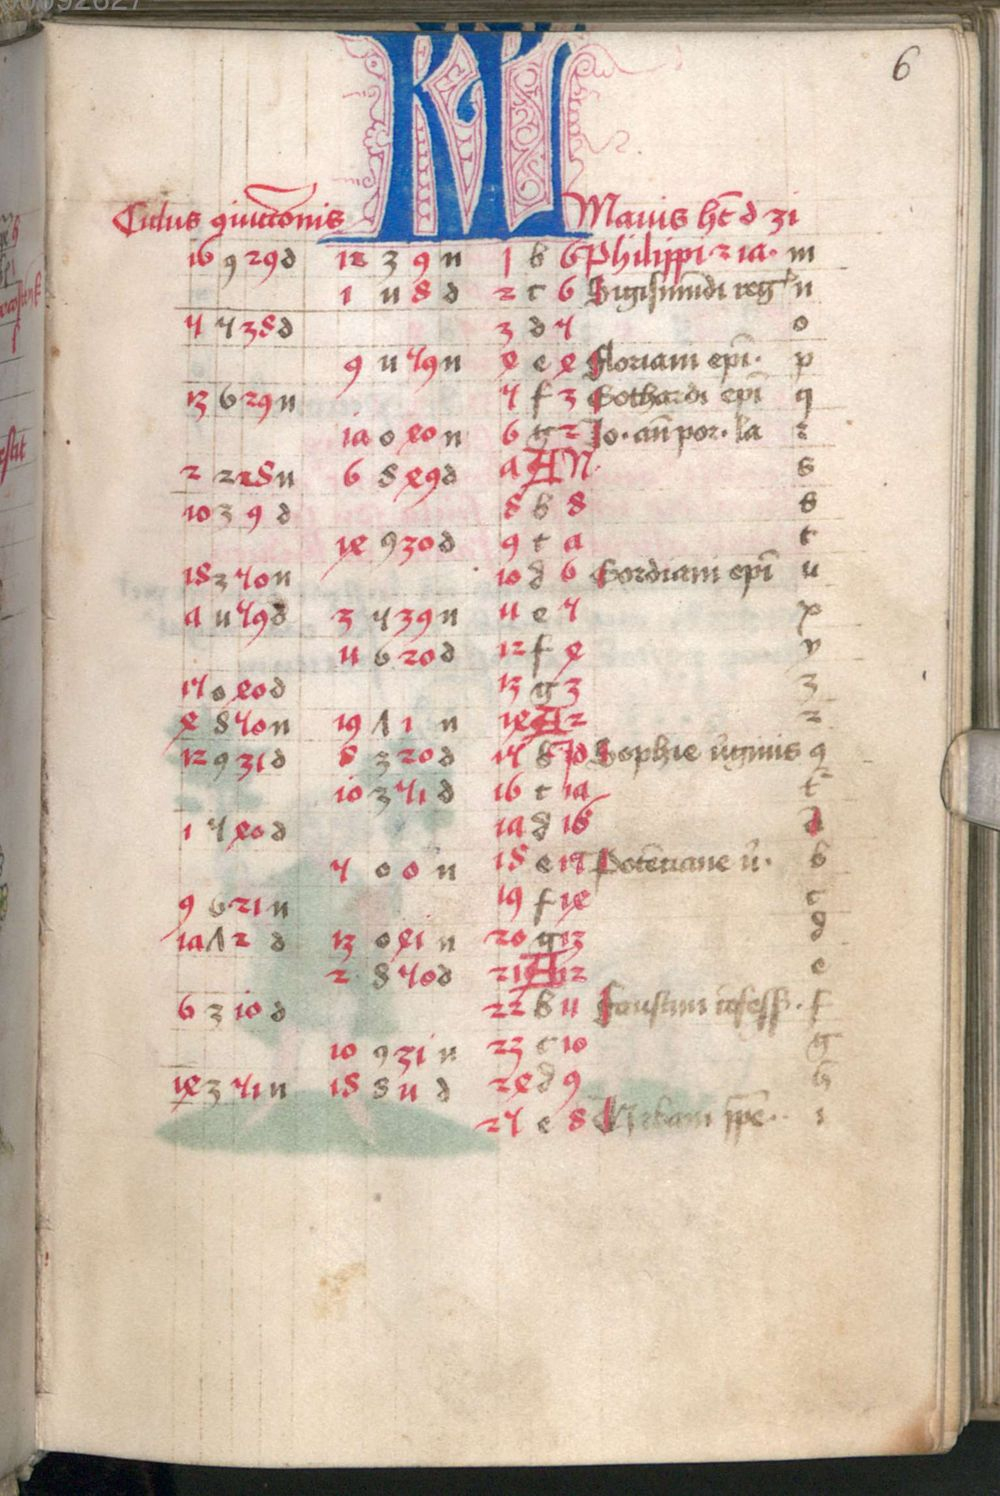 6
KL
Ciclus coniunctionis Mayus het d 31
16 9 29 d 12 3 9 n 1 b 6 Philippi z ia. m
1 11 8 d 2 c 6 Sigismundi reg n
5 5 38 d 3 d 5 o
9 11 59 n 4 e 4 Floriani epi. p
13 6 29 n 5 f 3 Gothardi epi q
17 0 40 n 6 g 2 Jo. an por. la r
2 2 28 n 6 8 49 d 7 A N. s
10 3 9 d 8 b 8 s
14 9 30 d 9 c 7 t
18 3 50 n 10 d 6 Gordiani epi u
7 11 59 d 3 5 39 n 11 e 5 x
11 6 20 d 12 f 4 y
15 0 40 d 13 g 3 z
4 8 50 n 19 7 1 n 14 A 2 z
12 9 31 d 8 3 20 d 15 b Id Sophie virginis 9
16 3 51 d 16 c 17 t
1 5 40 d 17 d 16 a
5 0 0 n 18 e 15 Potentiane v. b
9 6 21 n 19 f 14 c
17 7 2 d 13 0 41 n 20 g 13 d
2 8 50 d 21 A 12 e
6 3 10 d 22 b 11 Faustini confess. f
10 9 31 n 23 c 10 g
14 3 51 n 18 8 11 d 24 d 9 h
25 e 8 Urbani ppe. i